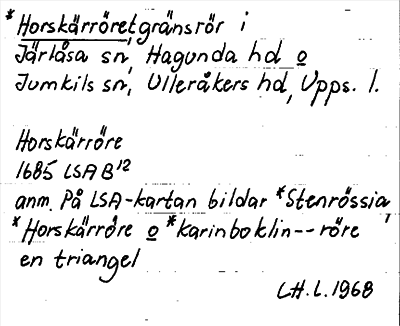 *Horskärröret, gränsrör i
Järlåsa sn, Hagunda hd o
Jumkils sn, Ulleråkers hd, Upps. l.
Horskärröre
1685 LSA B¹²
anm. På LSA-kartan bildar *Stenrössia,
*Horskärröre o *karinboklin--röre
en triangel
LH.L. 1968